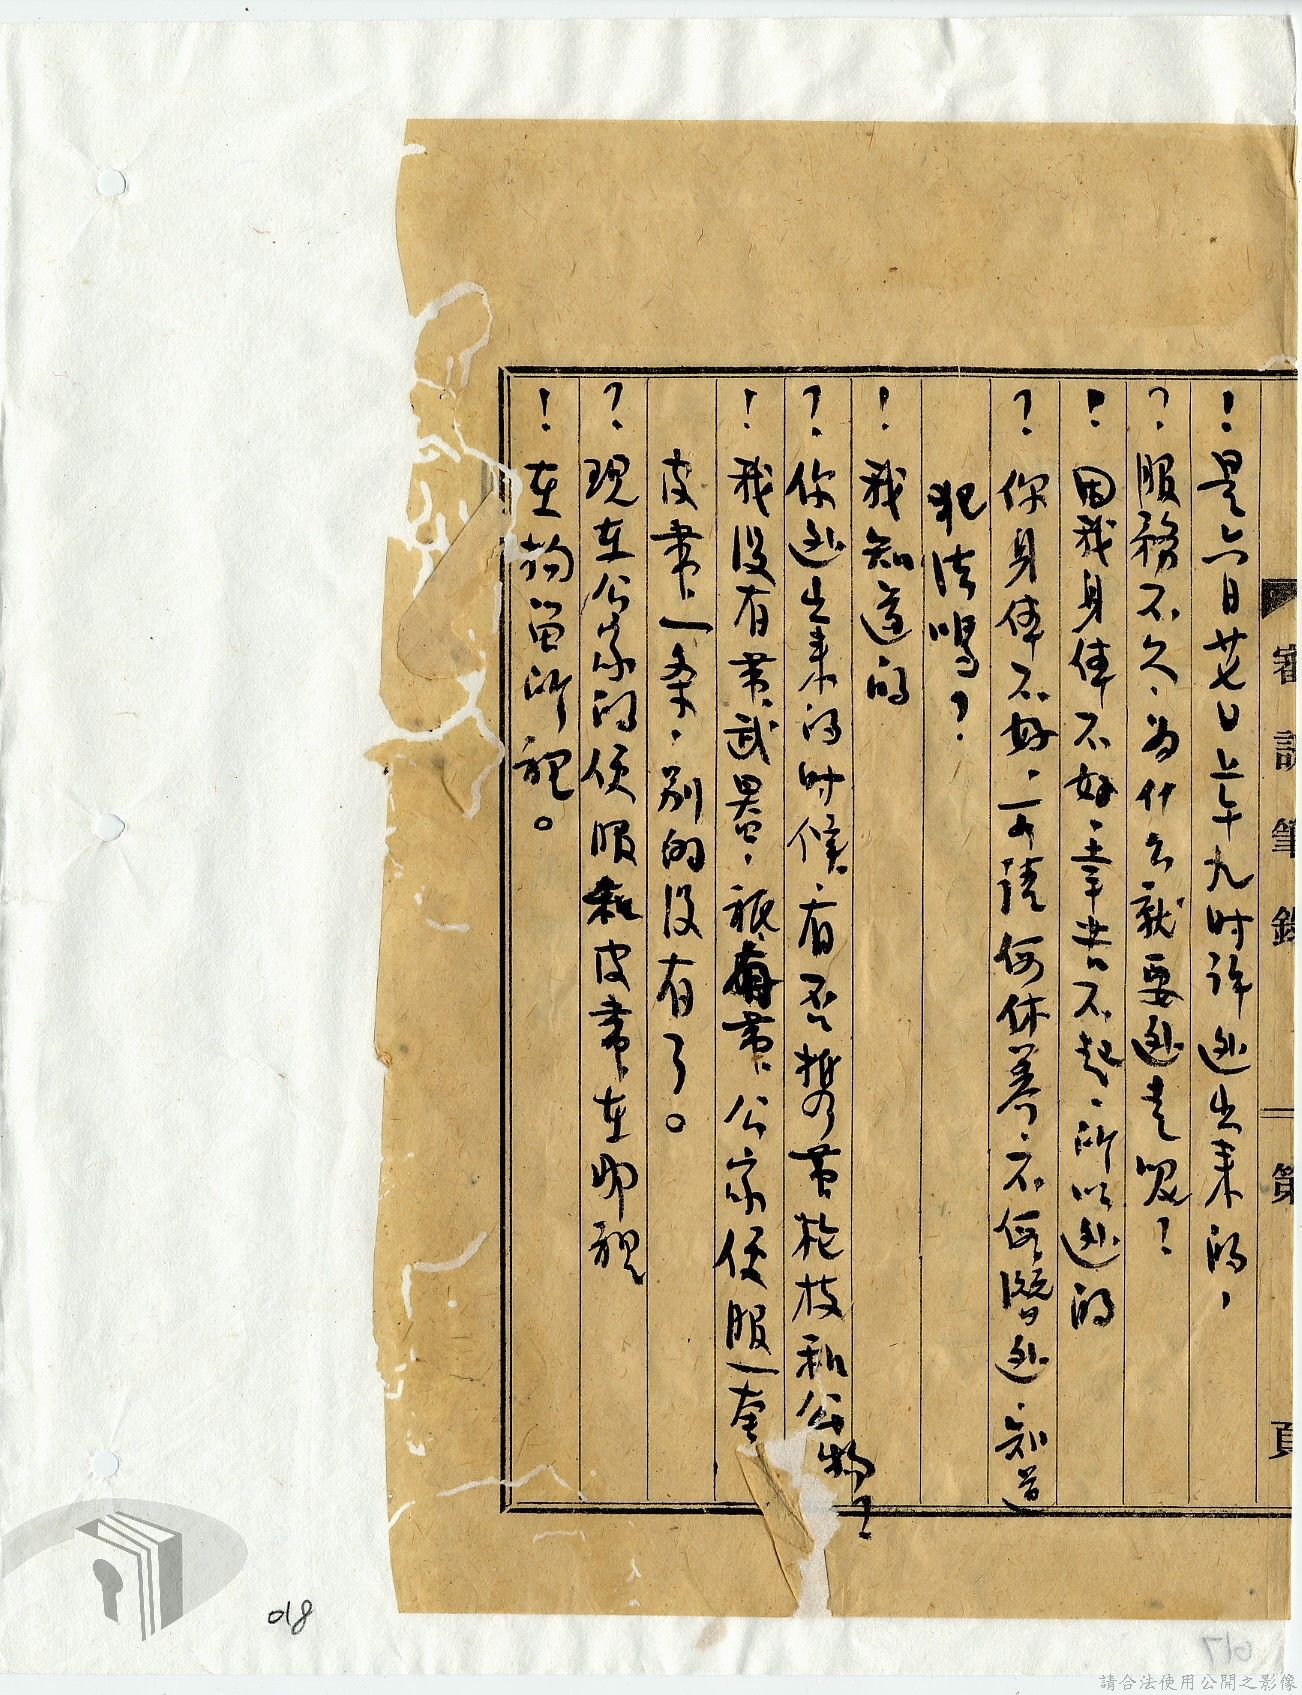 審訊筆錄 第 頁
!是六月廿七日上午九时许逃出来的,
?服務不久、为什么就要逃走呢?
!因我身体不好、辛苦不起、所以逃的
?你身体不好、可請假休养、不假潛逃、知道
犯法嗎?
!我知道的
?你逃出来的时候、有否携带枪枝和公物?
!我没有带武器、祗带公家便服一套
皮带一条、别的没有了。
?现在公家的便服和皮带在那裡
!在拘留所裡。
018
017
請合法使用公開之影像